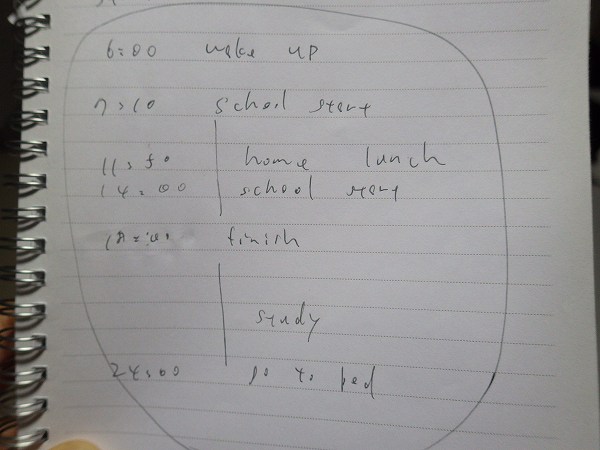 6:00 wake up
7:10 school start
11:50 home lunch
14:00 school start
18:00 finish
study
24:00 go to bed